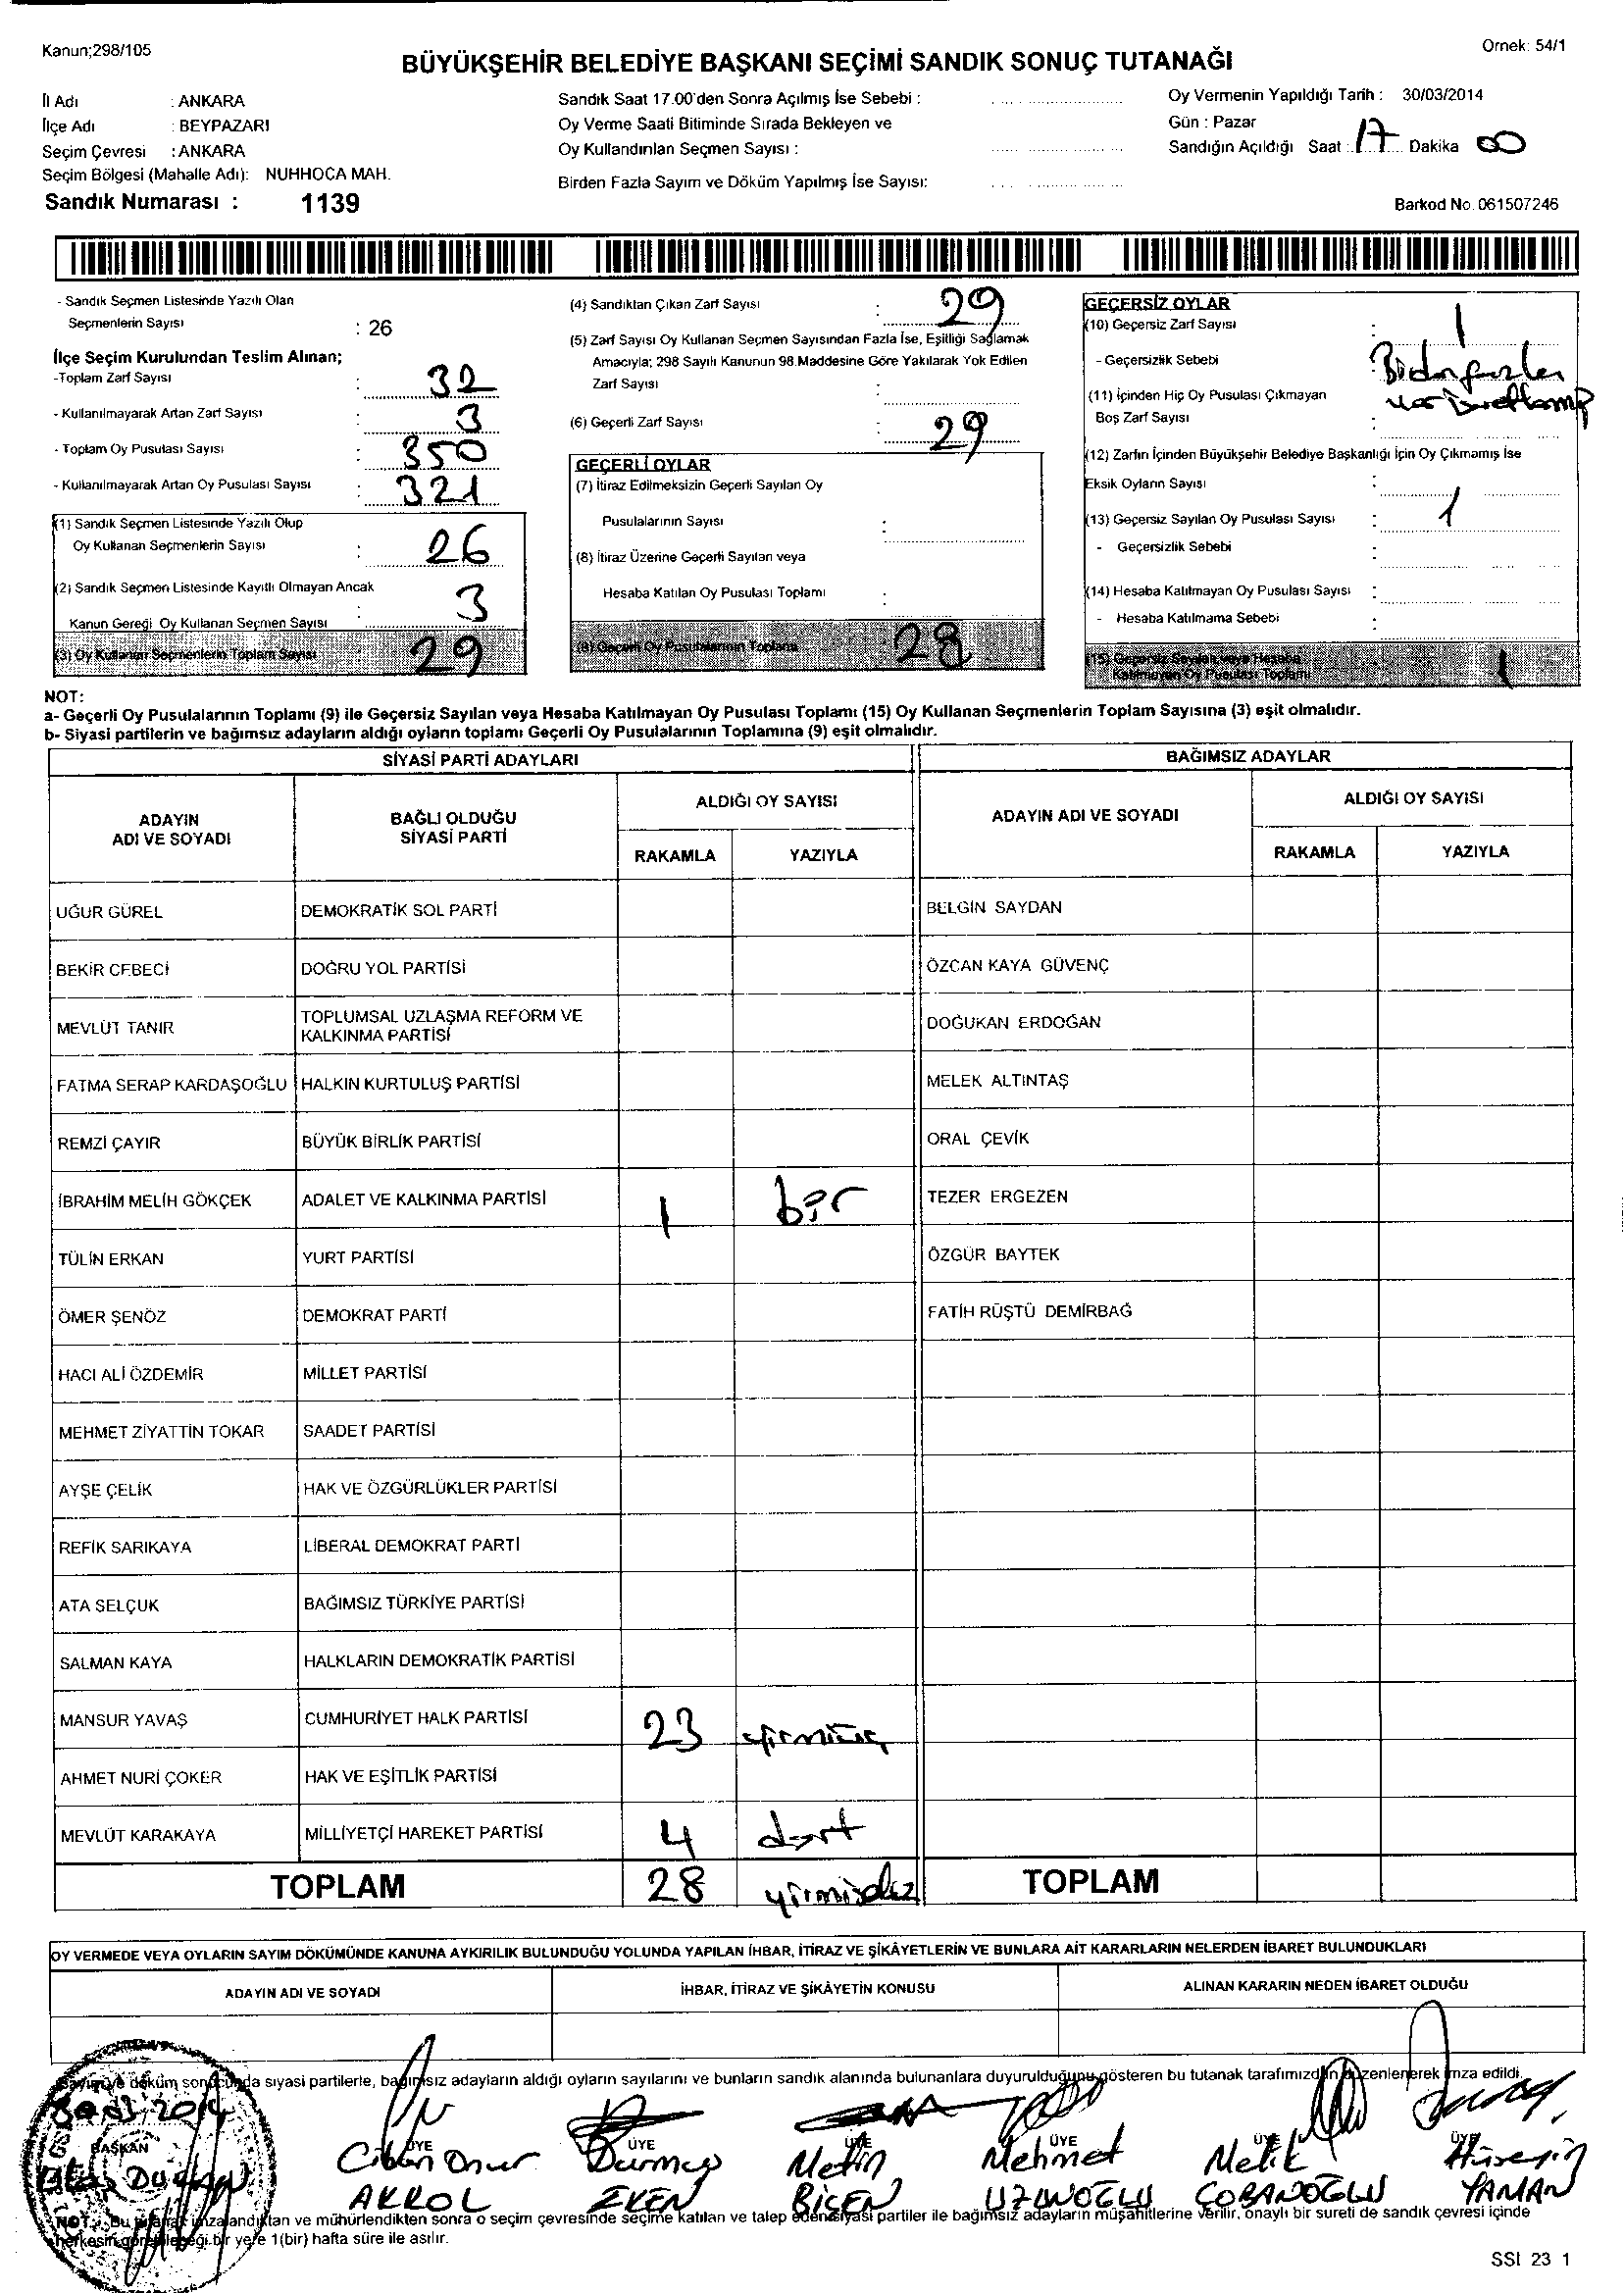 Kanun;298/105
Ornek: 54/1
BÜYÜKŞEHİR BELEDİYE BAŞKANI SEÇİMİ SANDIK SONUÇ TUTANAĞI
İl Adı : ANKARA
İlçe Adı : BEYPAZARI
Seçim Çevresi : ANKARA
Seçim Bölgesi (Mahalle Adı): NUHHOCA MAH.
Sandık Numarası : 1139
Sandık Saat 17.00'den Sonra Açılmış İse Sebebi :
Oy Verme Saati Bitiminde Sırada Bekleyen ve
Oy Kullandırılan Seçmen Sayısı :
Birden Fazla Sayım ve Döküm Yapılmış İse Sayısı:
Oy Vermenin Yapıldığı Tarih : 30/03/2014
Gün : Pazar
Sandığın Açıldığı Saat : 17 Dakika 00
Barkod No. 061507246
- Sandık Seçmen Listesinde Yazılı Olan
Seçmenlerin Sayısı : 26
İlçe Seçim Kurulundan Teslim Alınan;
-Toplam Zarf Sayısı : 32
- Kullanılmayarak Artan Zarf Sayısı : 3
- Toplam Oy Pusulası Sayısı : 350
- Kullanılmayarak Artan Oy Pusulası Sayısı : 321
(1) Sandık Seçmen Listesinde Yazılı Olup
Oy Kullanan Seçmenlerin Sayısı : 26
(2) Sandık Seçmen Listesinde Kayıtlı Olmayan Ancak
Kanun Gereği Oy Kullanan Seçmen Sayısı : 3
(3) Oy Kullanan Seçmenlerin Toplam Sayısı 29
(4) Sandıktan Çıkan Zarf Sayısı : 29
(5) Zarf Sayısı Oy Kullanan Seçmen Sayısından Fazla İse, Eşitliği Sağlamak
Amacıyla; 298 Sayılı Kanunun 98.Maddesine Göre Yakılarak Yok Edilen
Zarf Sayısı :
(6) Geçerli Zarf Sayısı : 29
GEÇERLİ OYLAR
(7) İtiraz Edilmeksizin Geçerli Sayılan Oy
Pusulalarının Sayısı :
(8) İtiraz Üzerine Geçerli Sayılan veya
Hesaba Katılan Oy Pusulası Toplamı :
(9) Geçerli Oy Pusulalarının Toplamı : 28
GEÇERSİZ OYLAR
(10) Geçersiz Zarf Sayısı : 1
- Geçersizlik Sebebi : Birden fazla
(11) İçinden Hiç Oy Pusulası Çıkmayan
Boş Zarf Sayısı :
(12) Zarfın İçinden Büyükşehir Belediye Başkanlığı İçin Oy Çıkmamış İse
Eksik Oyların Sayısı :
(13) Geçersiz Sayılan Oy Pusulası Sayısı : 1
- Geçersizlik Sebebi :
(14) Hesaba Katılmayan Oy Pusulası Sayısı :
- Hesaba Katılmama Sebebi :
(15) Geçersiz Sayılan veya Hesaba
Katılmayan Oy Pusulası Toplamı 1
NOT:
a- Geçerli Oy Pusulalarının Toplamı (9) ile Geçersiz Sayılan veya Hesaba Katılmayan Oy Pusulası Toplamı (15) Oy Kullanan Seçmenlerin Toplam Sayısına (3) eşit olmalıdır.
b- Siyasi partilerin ve bağımsız adayların aldığı oyların toplamı Geçerli Oy Pusulalarının Toplamına (9) eşit olmalıdır.
SİYASİ PARTİ ADAYLARI
ADAYIN ADI VE SOYADI BAĞLI OLDUĞU SİYASİ PARTİ ALDIĞI OY SAYISI
RAKAMLA YAZIYLA
UĞUR GÜREL DEMOKRATİK SOL PARTİ
BEKİR CEBECİ DOĞRU YOL PARTİSİ
MEVLÜT TANIR TOPLUMSAL UZLAŞMA REFORM VE
KALKINMA PARTİSİ
FATMA SERAP KARDAŞOĞLU HALKIN KURTULUŞ PARTİSİ
REMZİ ÇAYIR BÜYÜK BİRLİK PARTİSİ
İBRAHİM MELİH GÖKÇEK ADALET VE KALKINMA PARTİSİ 1 bir
TÜLİN ERKAN YURT PARTİSİ
ÖMER ŞENÖZ DEMOKRAT PARTİ
HACI ALİ ÖZDEMİR MİLLET PARTİSİ
MEHMET ZİYATTİN TOKAR SAADET PARTİSİ
AYŞE ÇELİK HAK VE ÖZGÜRLÜKLER PARTİSİ
REFİK SARIKAYA LİBERAL DEMOKRAT PARTİ
ATA SELÇUK BAĞIMSIZ TÜRKİYE PARTİSİ
SALMAN KAYA HALKLARIN DEMOKRATİK PARTİSİ
MANSUR YAVAŞ CUMHURİYET HALK PARTİSİ 23 yirmiüç
AHMET NURİ ÇOKER HAK VE EŞİTLİK PARTİSİ
MEVLÜT KARAKAYA MİLLİYETÇİ HAREKET PARTİSİ 4 dört
TOPLAM 28
BAĞIMSIZ ADAYLAR
ADAYIN ADI VE SOYADI ALDIĞI OY SAYISI
RAKAMLA YAZIYLA
BELGİN SAYDAN
ÖZCAN KAYA GÜVENÇ
DOĞUKAN ERDOĞAN
MELEK ALTINTAŞ
ORAL ÇEVİK
TEZER ERGEZEN
ÖZGÜR BAYTEK
FATİH RÜŞTÜ DEMİRBAĞ
TOPLAM
OY VERMEDE VEYA OYLARIN SAYIM DÖKÜMÜNDE KANUNA AYKIRILIK BULUNDUĞU YOLUNDA YAPILAN İHBAR, İTİRAZ VE ŞİKÂYETLERİN VE BUNLARA AİT KARARLARIN NELERDEN İBARET BULUNDUKLARI
ADAYIN ADI VE SOYADI İHBAR, İTİRAZ VE ŞİKÂYETİN KONUSU ALINAN KARARIN NEDEN İBARET OLDUĞU
Sayım ve döküm sonucunda siyasi partilerle, bağımsız adayların aldığı oyların sayılarını ve bunların sandık alanında bulunanlara duyurulduğunu gösteren bu tutanak tarafımızdan düzenlenerek imza edildi.
BAŞKAN ÜYE ÜYE ÜYE ÜYE ÜYE ÜYE
Onur Durmuş Metin Mehmet Melik Hüseyin
AKKOL EKEN BİÇEN UZUNOĞLU ÇOBANOĞLU YAMAN
NOT : Bu tutanak imzalandıktan ve mühürlendikten sonra o seçim çevresinde seçime katılan ve talep eden siyasi partiler ile bağımsız adayların müşahitlerine verilir, onaylı bir sureti de sandık çevresi içinde
herkesin görebileceği bir yere 1(bir) hafta süre ile asılır.
SSI 23 1